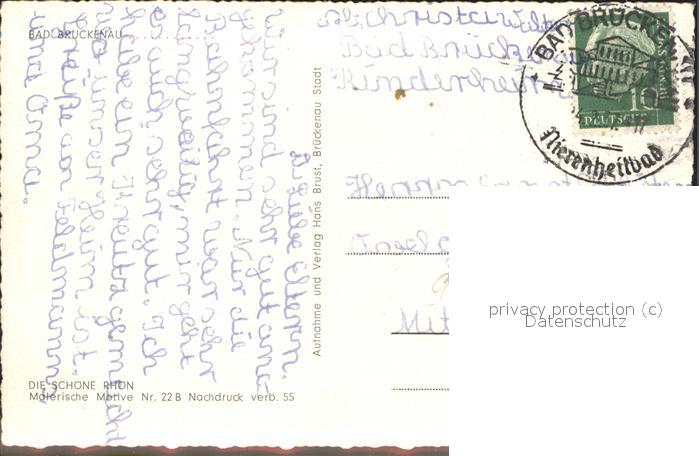 BAD BRÜCKENAU
Abs. Christa
Bad Brückenau
Kinderheim
BAD BRÜCKENAU
Nierenheilbad
10
DEUTSCHE
Liebe Eltern.
wir sind sehr gut ange
kommen. Nur die
Bahnfahrt war sehr
langweilig, mir geht
es auch sehr gut. Ich
habe ein Kreuz gemacht
wo unser Heim ist.
Grüße an Feldmanns
und Oma.
Aufnahme und Verlag Hans Brust, Brückenau Stadt
Herrn
Mit
DIE SCHÖNE RHÖN
Malerische Motive Nr. 22 B Nachdruck verb. 55
privacy protection (c)
Datenschutz